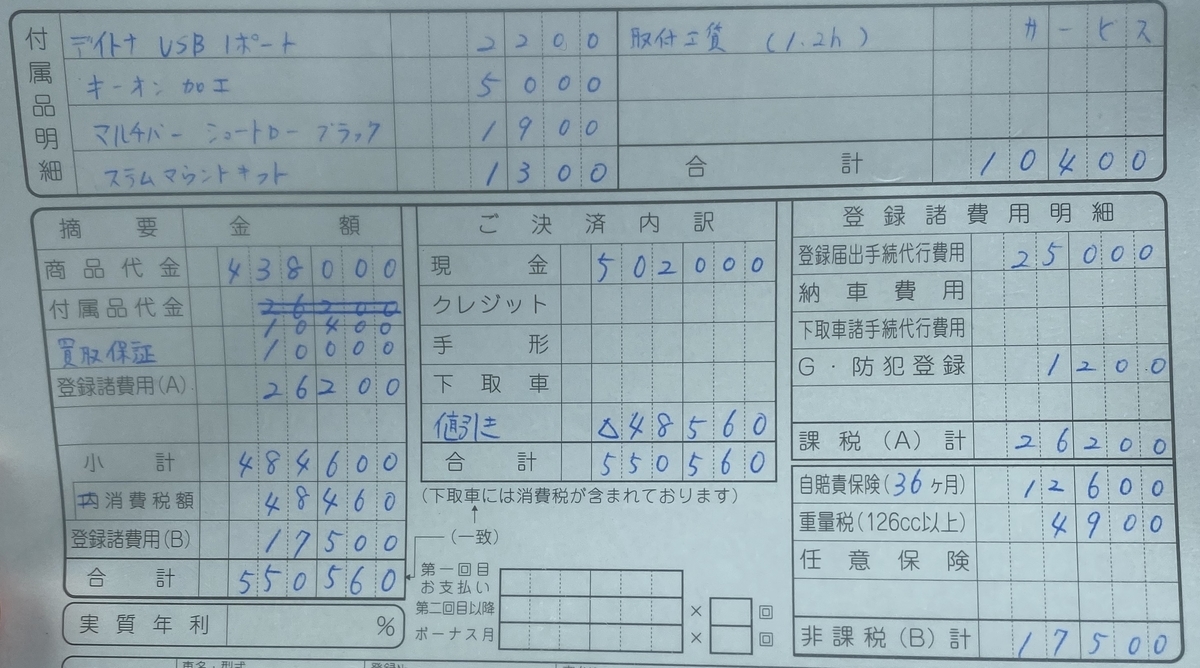 付属品明細
デイトナ USB 1ポート 2200 取付工賃 (1.2h) サービス
キーオン加工 5000
マルチバー ショートロー ブラック 1900
ステムマウントキット 1300 合計 10400
摘要 金額
商品代金 438000
付属品代金 26200
10400
買取保証 10000
登録諸費用(A) 26200
小計 484600
内消費税額 48460
登録諸費用(B) 17500
合計 550560
実質年利 %
ご決済内訳
現金 502000
クレジット
手形
下取車
値引き △48560
合計 550560
(下取車には消費税が含まれております)
(一致)
第一回目
お支払い
第二回目以降 × 回
ボーナス月 × 回
登録諸費用明細
登録届出手続代行費用 25000
納車費用
下取車諸手続代行費用
G・防犯登録 1200
課税(A)計 26200
自賠責保険(36ヶ月) 12600
重量税(126cc以上) 4900
任意保険
非課税(B)計 17500
車名・型式